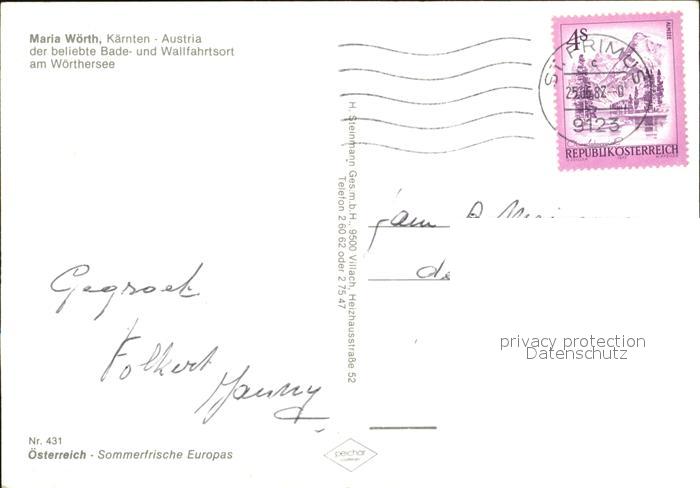 Maria Wörth, Kärnten - Austria
der beliebte Bade- und Wallfahrtsort
am Wörthersee
4S
ALMSEE
REPUBLIK ÖSTERREICH
ST. PRIMUS
c
9123
H. Steinmann Ges.m.b.H., 9500 Villach, Heizhausstraße 52
Telefon 2 60 62 oder 2 75 47
fam
de
privacy protection
Datenschutz
Gegroet
Folkert
Janny
Nr. 431
Österreich - Sommerfrische Europas